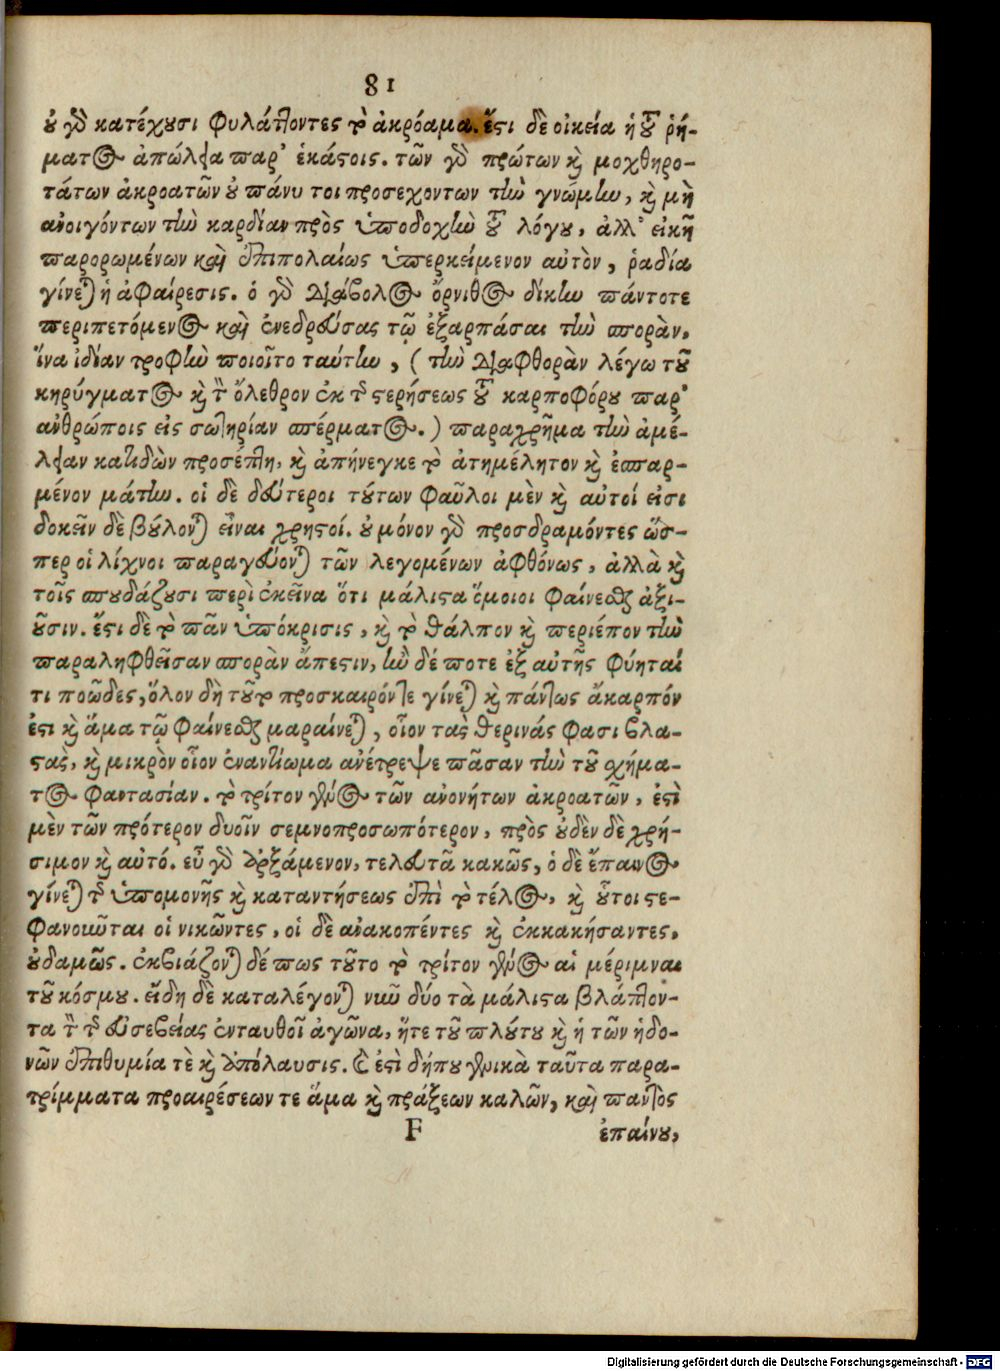 81
οὐ γὰρ κατέχουσι φυλάττοντες τὸ ἀκρόαμα. ἔστι δὲ οἰκεία ἡ τοῦ ῥή-
ματος ἀπώλεια παρ' ἑκάστοις. τῶν γὰρ πρώτων καὶ μοχθηρο-
τάτων ἀκροατῶν οὐ πάνυ τοι προσεχοντων τὴν γνώμην, καὶ μὴ
ἀνοιγόντων τὴν καρδίαν πρὸς ὑποδοχὴν τοῦ λόγου, ἀλλ' εἰκῆ
παρορωμένων καὶ ἐπιπολαίως ὑπερκείμενον αὐτὸν, ῥαδία
γίνεται ἡ ἀφαίρεσις. ὁ γὰρ διάβολος ὄρνιθος δίκην πάντοτε
περιπετόμενος καὶ ἐνεδρεύσας τῷ ἐξαρπάσαι τὴν σπορὰν,
ἵνα ἰδίαν τροφὴν ποιοῖτο ταύτην, (τὴν διαφθορὰν λέγω τοῦ
κηρύγματος καὶ τὸν ὄλεθρον ἐκ τῆς στερήσεως τοῦ καρποφόρου παρ'
ἀνθρώποις εἰς σωτηρίαν σπέρματος.) παραχρῆμα τὴν ἀμέ-
λειαν κατιδὼν προσέπτη, καὶ ἀπήνεγκε τὸ ἀτημέλητον καὶ ἐσπαρ-
μένον μάτην. οἱ δὲ δεύτεροι τούτων φαῦλοι μὲν καὶ αὐτοί εἰσι
δοκεῖν δὲ βούλονται εἶναι χρηστοί. οὐ μόνον γὰρ προσδραμόντες ὥσ-
περ οἱ λίχνοι παραγεύονται τῶν λεγομένων ἀφθόνως, ἀλλὰ καὶ
τοῖς σπουδάζουσι περὶ ἐκεῖνα ὅτι μάλιστα ὅμοιοι φαίνεσθαι ἀξι-
οῦσιν. ἔστι δὲ τὸ πᾶν ὑπόκρισις, καὶ τὸ θάλπον καὶ περιέπον τὴν
παραληφθεῖσαν σπορὰν ἄπεστιν, ἢν δέ ποτε ἐξ αὐτῆς φύηταί
τι ποῶδες, ὅλον δὴ τοῦτο προσκαιρόν τε γίνεται καὶ πάντως ἄκαρπόν
ἐστι καὶ ἅμα τῷ φαίνεσθαι μαραίνεται, οἷον τὰς θερινάς φασι βλα-
στὰς, καὶ μικρὸν οἷον ἐναντίωμα ἀνέτρεψε πᾶσαν τὴν τοῦ σχήμα-
τος φαντασίαν. τὸ τρίτον γένος τῶν ἀνονήτων ἀκροατῶν, ἐστὶ
μὲν τῶν πρότερον δυοῖν σεμνοπροσωπότερον, πρὸς οὐδὲν δὲ χρή-
σιμον καὶ αὐτό. εὖ γὰρ ἀρξάμενον, τελευτᾶ κακῶς, ὁ δὲ ἔπαινος
γίνεται τῆς ὑπομονῆς καὶ καταντήσεως ἐπὶ τὸ τέλος, καὶ οὗτοι στε-
φανοῦνται οἱ νικῶντες, οἱ δὲ ἀνακοπέντες καὶ ἐκκακήσαντες,
οὐδαμῶς. ἐκβιάζονται δέ πως τοῦτο τὸ τρίτον γένος αἱ μέριμναι
τοῦ κόσμου. εἴδη δὲ καταλέγονται νῦν δύο τὰ μάλιστα βλάπτον-
τα τὸν τῆς εὐσεβείας ἐνταυθοῖ ἀγῶνα, ἥτε τοῦ πλούτου καὶ ἡ τῶν ἡδο-
νῶν ἐπιθυμία τὲ καὶ ἀπόλαυσις. καὶ ἐστὶ δήπου γενικὰ ταῦτα παρα-
τρίμματα προαιρέσεων τε ἅμα καὶ πράξεων καλῶν, καὶ παντὸς
F ἐπαίνου,
Digitalisierung gefördert durch die Deutsche Forschungsgemeinschaft - DFG